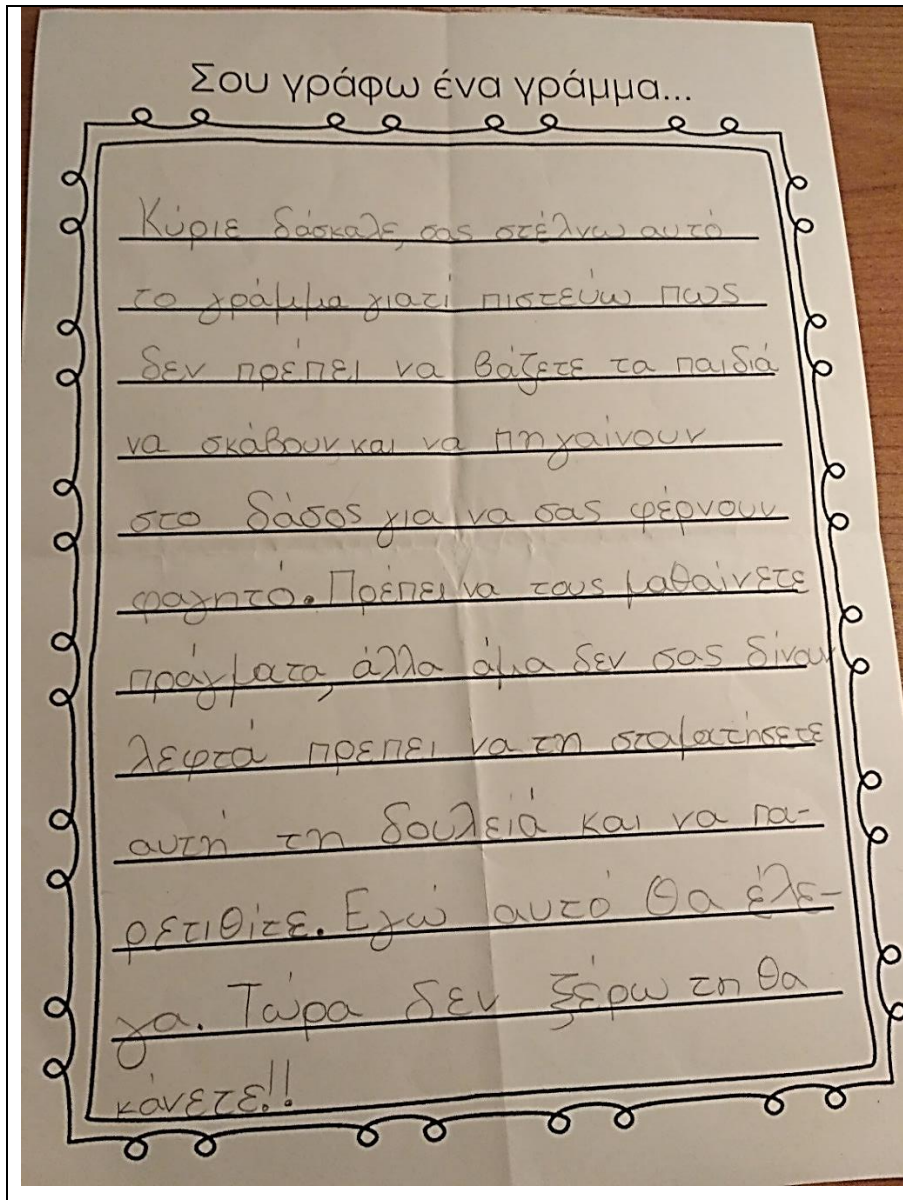 Σου γράφω ένα γράμμα...
Κύριε δάσκαλε, σας στέλνω αυτό
το γράμμα γιατί πιστεύω πως
δεν πρέπει να βάζετε τα παιδιά
να σκάβουν και να πηγαίνουν
στο δάσος για να σας φέρνουν
φαγητό. Πρέπει να τους μαθαίνετε
πράγματα, άλλα άμα δεν σας δίνουν
λεφτά πρεπει να τη σταματήσετε
αυτή τη δουλειά και να πα-
ρετιθίτε. Εγώ αυτό θα έλε-
γα. Τώρα δεν ξέρω τη θα
κάνετε!!